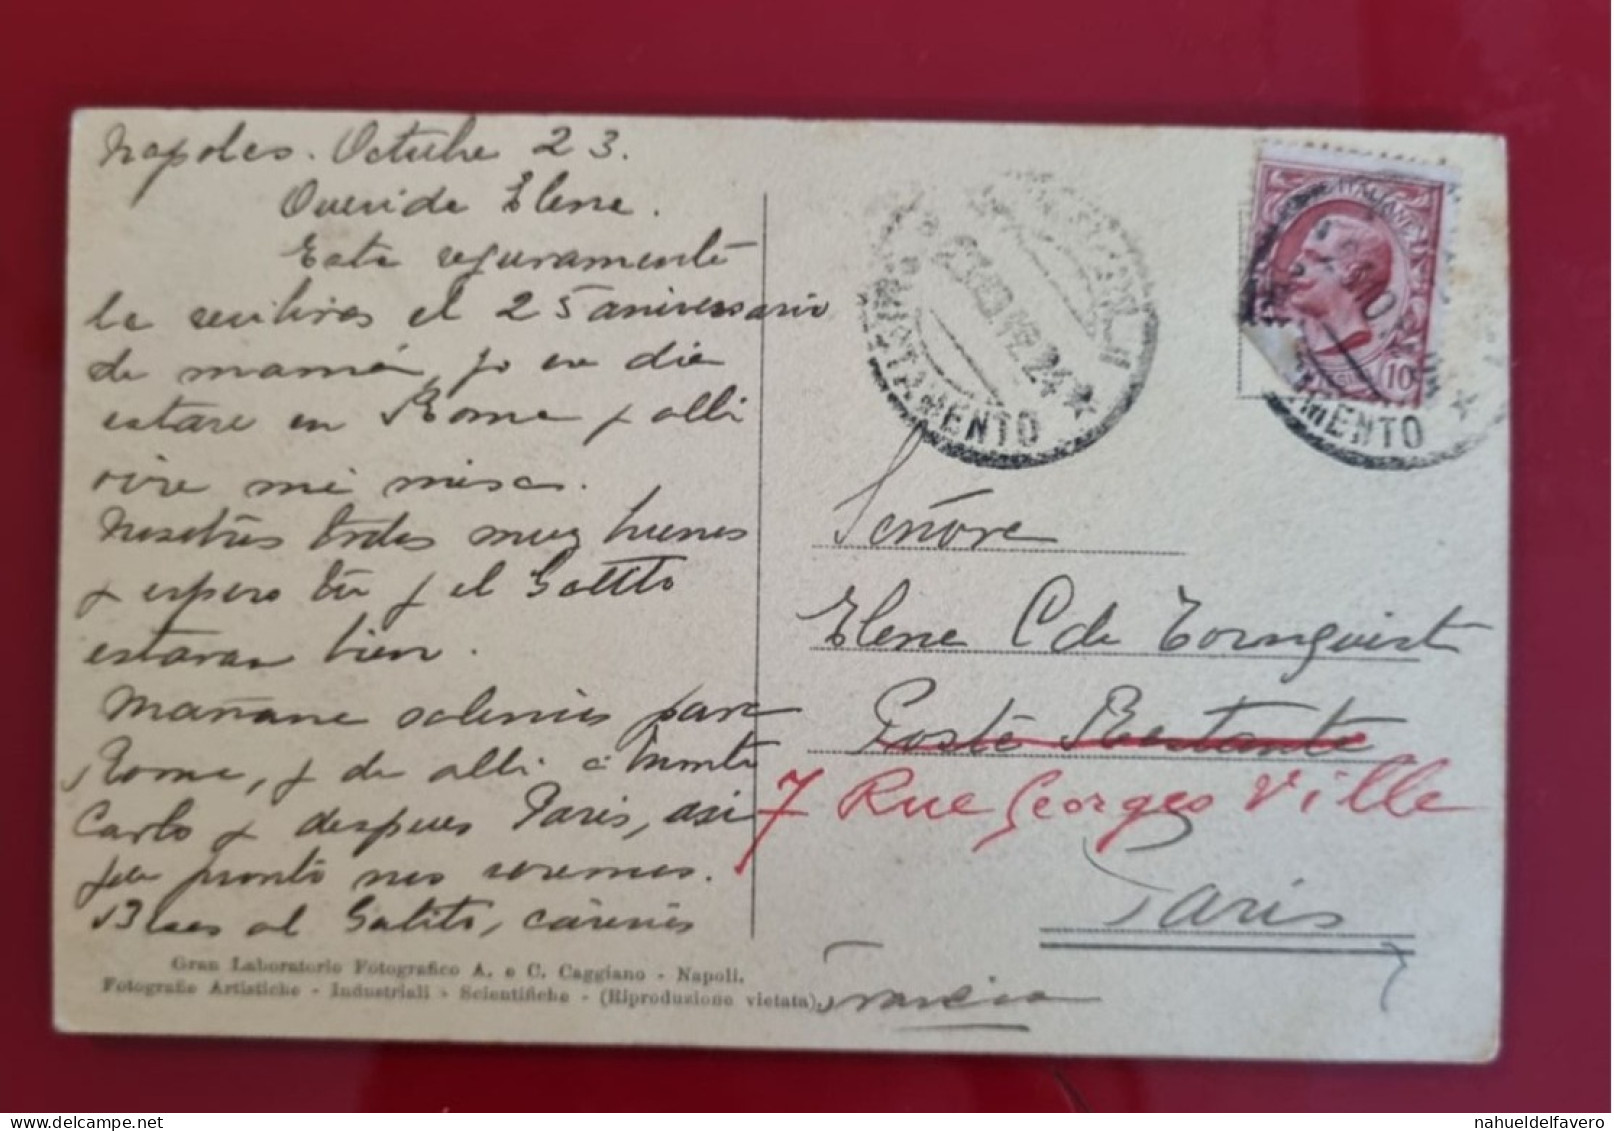 Napoles. Octubre 23.
Querida Elena.
Esta seguramente
la recibiras el 25 aniversario
de mamá, yo ese dia
estare en Roma y alli
oire mi misa.
Nosotros todos muy buenos
y espero tu y el Gatito
estaran bien.
Mañana salimos para
Roma, y de alli a Monte
Carlo y despues Paris, asi
que pronto nos veremos.
Besos al Gatito, cariños
Gran Laboratorio Fotografico A. e C. Caggiano - Napoli.
Fotografie Artistiche - Industriali - Scientifiche - (Riproduzione vietata)
NAPOLI
23 X 19 24
MENTO
ITALIANE
10
MENTO
Señora
Elena C de Tornquist
Poste Restante
7 Rue Georges Ville
Paris
Francia
nahueldelfavero